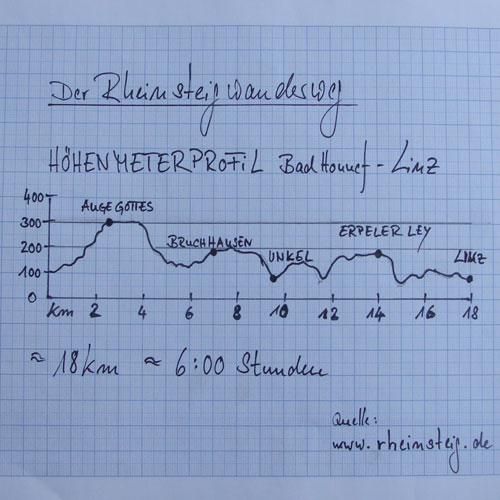 Der Rheinsteigwanderweg
HÖHENMETERPROFiL Bad Honnef - Linz
400
AUGE GOTTES
300
ERPELER LEY
BRUCHHAUSEN
200
UNKEL
LINZ
100
0
km 2 4 6 8 10 12 14 16 18
≈ 18 km ≈ 6:00 Stunden
Quelle:
www.rheinsteig.de